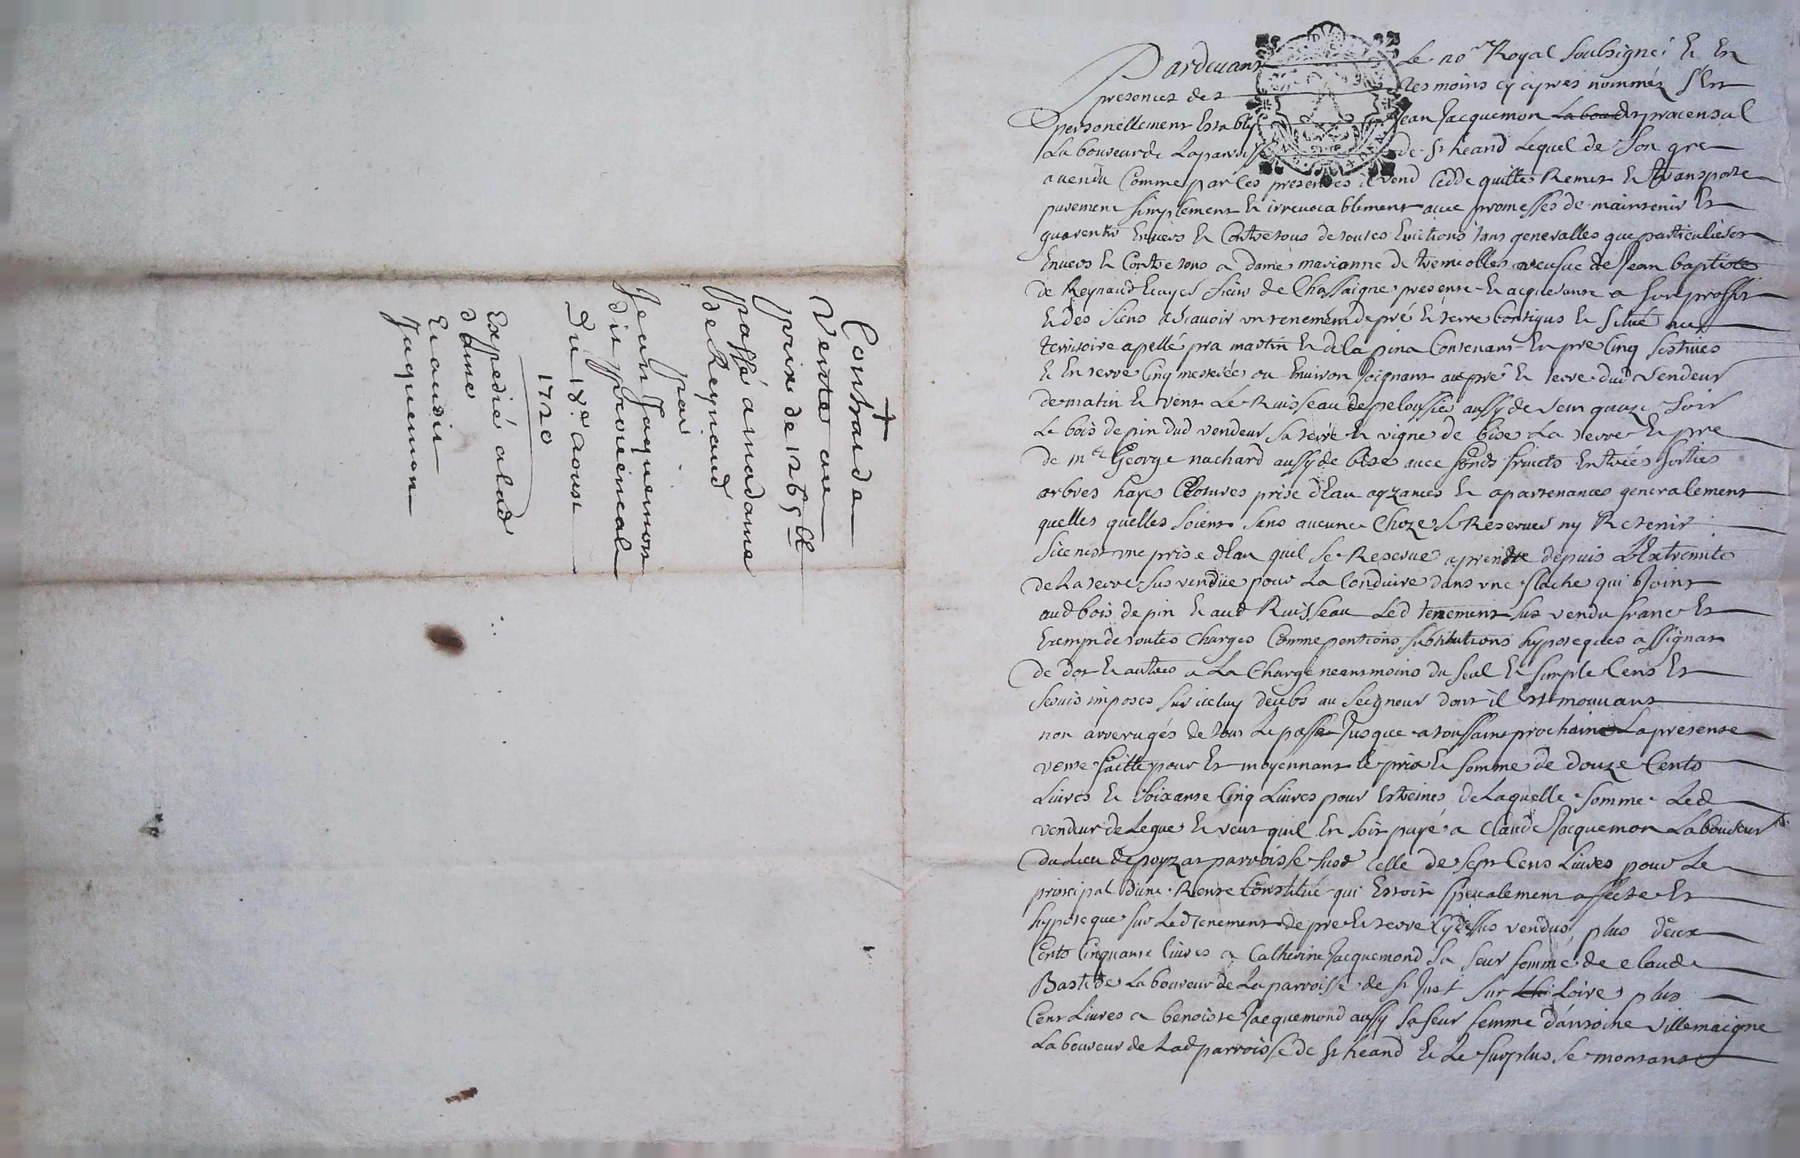 Contract de
Vente au
prix de 1265ll
passé a madame
de Reynaud
par
Jean Jaquemon
dit provencal
Du 18e aoust
1720
Expedié a lad
dame
Et audit
Jaquemon
Pardevant Le nore Royal soubsigné Et En
presences des tesmoins cy apres nommés s'Est
personellement Estably Jean Jacquemon provensal
Laboureur de La parroisse de st heand Lequel de son gre
a vendu Comme par Ces presentes il vend Cedde quitte Remet Et transporte
purement simplement Et irrevocablement avec promesses de maintenir Et
guarentir Envers Et Contre tous de toutes Evictions tant generalles que particulieres
Envers Et Contre tous a dame marianne de tremeolles veufve de Jean baptiste
de Reynaud Ecuyer sieur de Chassaigne presente Et acquerante a son proffit
Et des siens a scavoir un tenement de pré Et terre Contigus Et situé au
territoire apellé pra martin Et de la pina Contenant En pre Cinq sestives
Et En terre Cinq mesterées ou Environ Joignant au pré Et terre dud vendeur
de matin Et vent Le Ruisseau de pelousses aussy de vent quazi soir
Le bois de pin dud vendeur sa terre Et vigne de bise La terre Et pre
de me George nachard aussy de bise avec fonds fruicts Entrées sorties
arbres hayes Clotures prise d'Eau ayzances Et apartenances generalement
quelles quelles soient sans aucune Choze se Reserver ny Retenir
si ce n'est une prise d'Eau quil se Reserve a prendre depuis L'Extremite
de La terre sus vendüe pour La Conduire dans une flache qui Joint
aud bois de pin Et aud Ruisseau Led tenement sus vendu franc Et
Exempt de toutes Charges Comme pentions substitutions hypoteques assignat
de dot Et autres a La Charge neantmoins du seul Et simple Cens Et
servis imposes sur iceluy deubs au seigneur dont il Est mouvant
non arreragés de tout Le passé Jusque a toussaint prochaine La presente
vente faitte pour Et moyennant le prix Et somme de douze Cents
Livres Et soixante Cinq Livres pour Estreines de Laquelle somme Led
vendeur delegue Et veut quil En soit payé a Claude Jacquemon Laboureur
du Lieu de poyzat parroisse susd Celle de sept Cens Livres pour Le
principal d'une Rente Constitué qui Estoit specialement affecté Et
hypoteque sur Led tenement de pre Et terre Cy dessus vendus, plus deux
Cents Cinquante livres a Catherine Jacquemond sa seur femme de claude
Bastide Laboureur de La parroisse de st Just sur Loire plus
Cent Livres a benoiste Jacquemond aussy sa seur femme d'antoine villemaigne
Laboureur de Lad parroisse de st heand Et Le surplus se montant